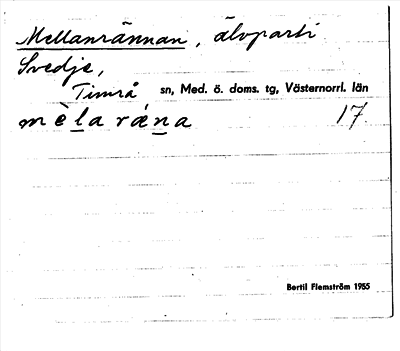 Mellanrännan, älvparti
Svedje,
Timrå sn, Med. ö. doms. tg, Västernorrl. län
mèl̲a ræ̀n̲a 17.
Bertil Flemström 1955